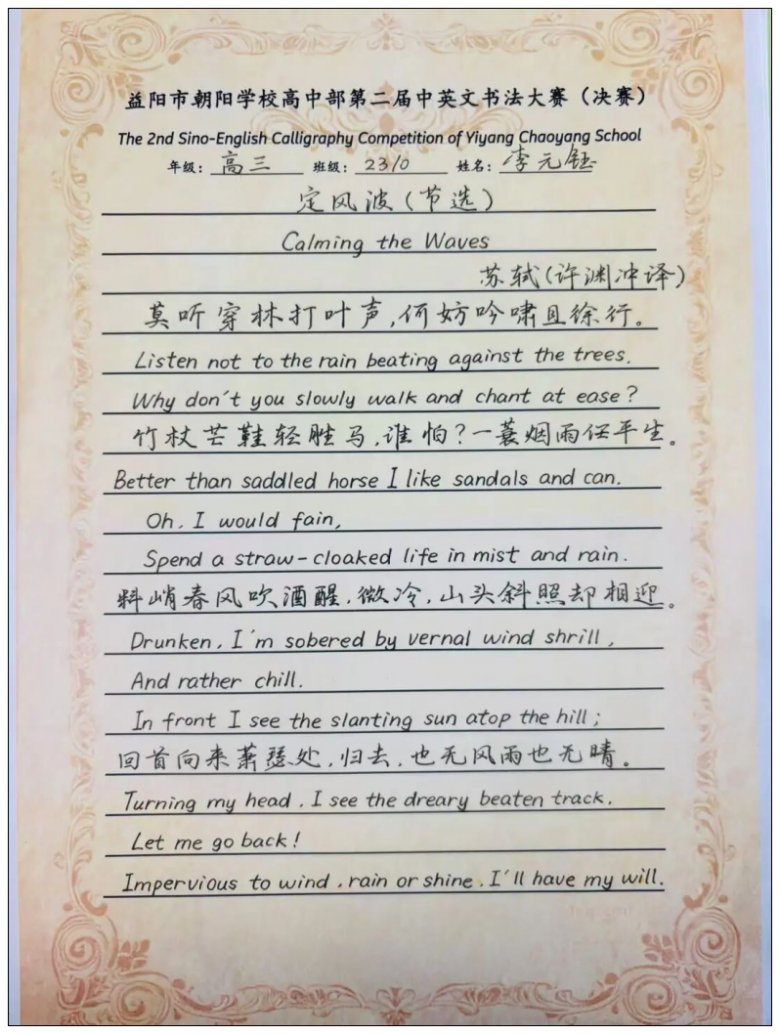 益阳市朝阳学校高中部第二届中英文书法大赛（决赛）
The 2nd Sino-English Calligraphy Competition of Yiyang Chaoyang School
年级：高三 班级：2310 姓名：李元钰
定风波（节选）
Calming the Waves
苏轼（许渊冲译）
莫听穿林打叶声，何妨吟啸且徐行。
Listen not to the rain beating against the trees.
Why don't you slowly walk and chant at ease?
竹杖芒鞋轻胜马，谁怕？一蓑烟雨任平生。
Better than saddled horse I like sandals and can.
Oh, I would fain,
Spend a straw-cloaked life in mist and rain.
料峭春风吹酒醒，微冷，山头斜照却相迎。
Drunken, I'm sobered by vernal wind shrill,
And rather chill.
In front I see the slanting sun atop the hill;
回首向来萧瑟处，归去，也无风雨也无晴。
Turning my head, I see the dreary beaten track.
Let me go back!
Impervious to wind, rain or shine, I'll have my will.